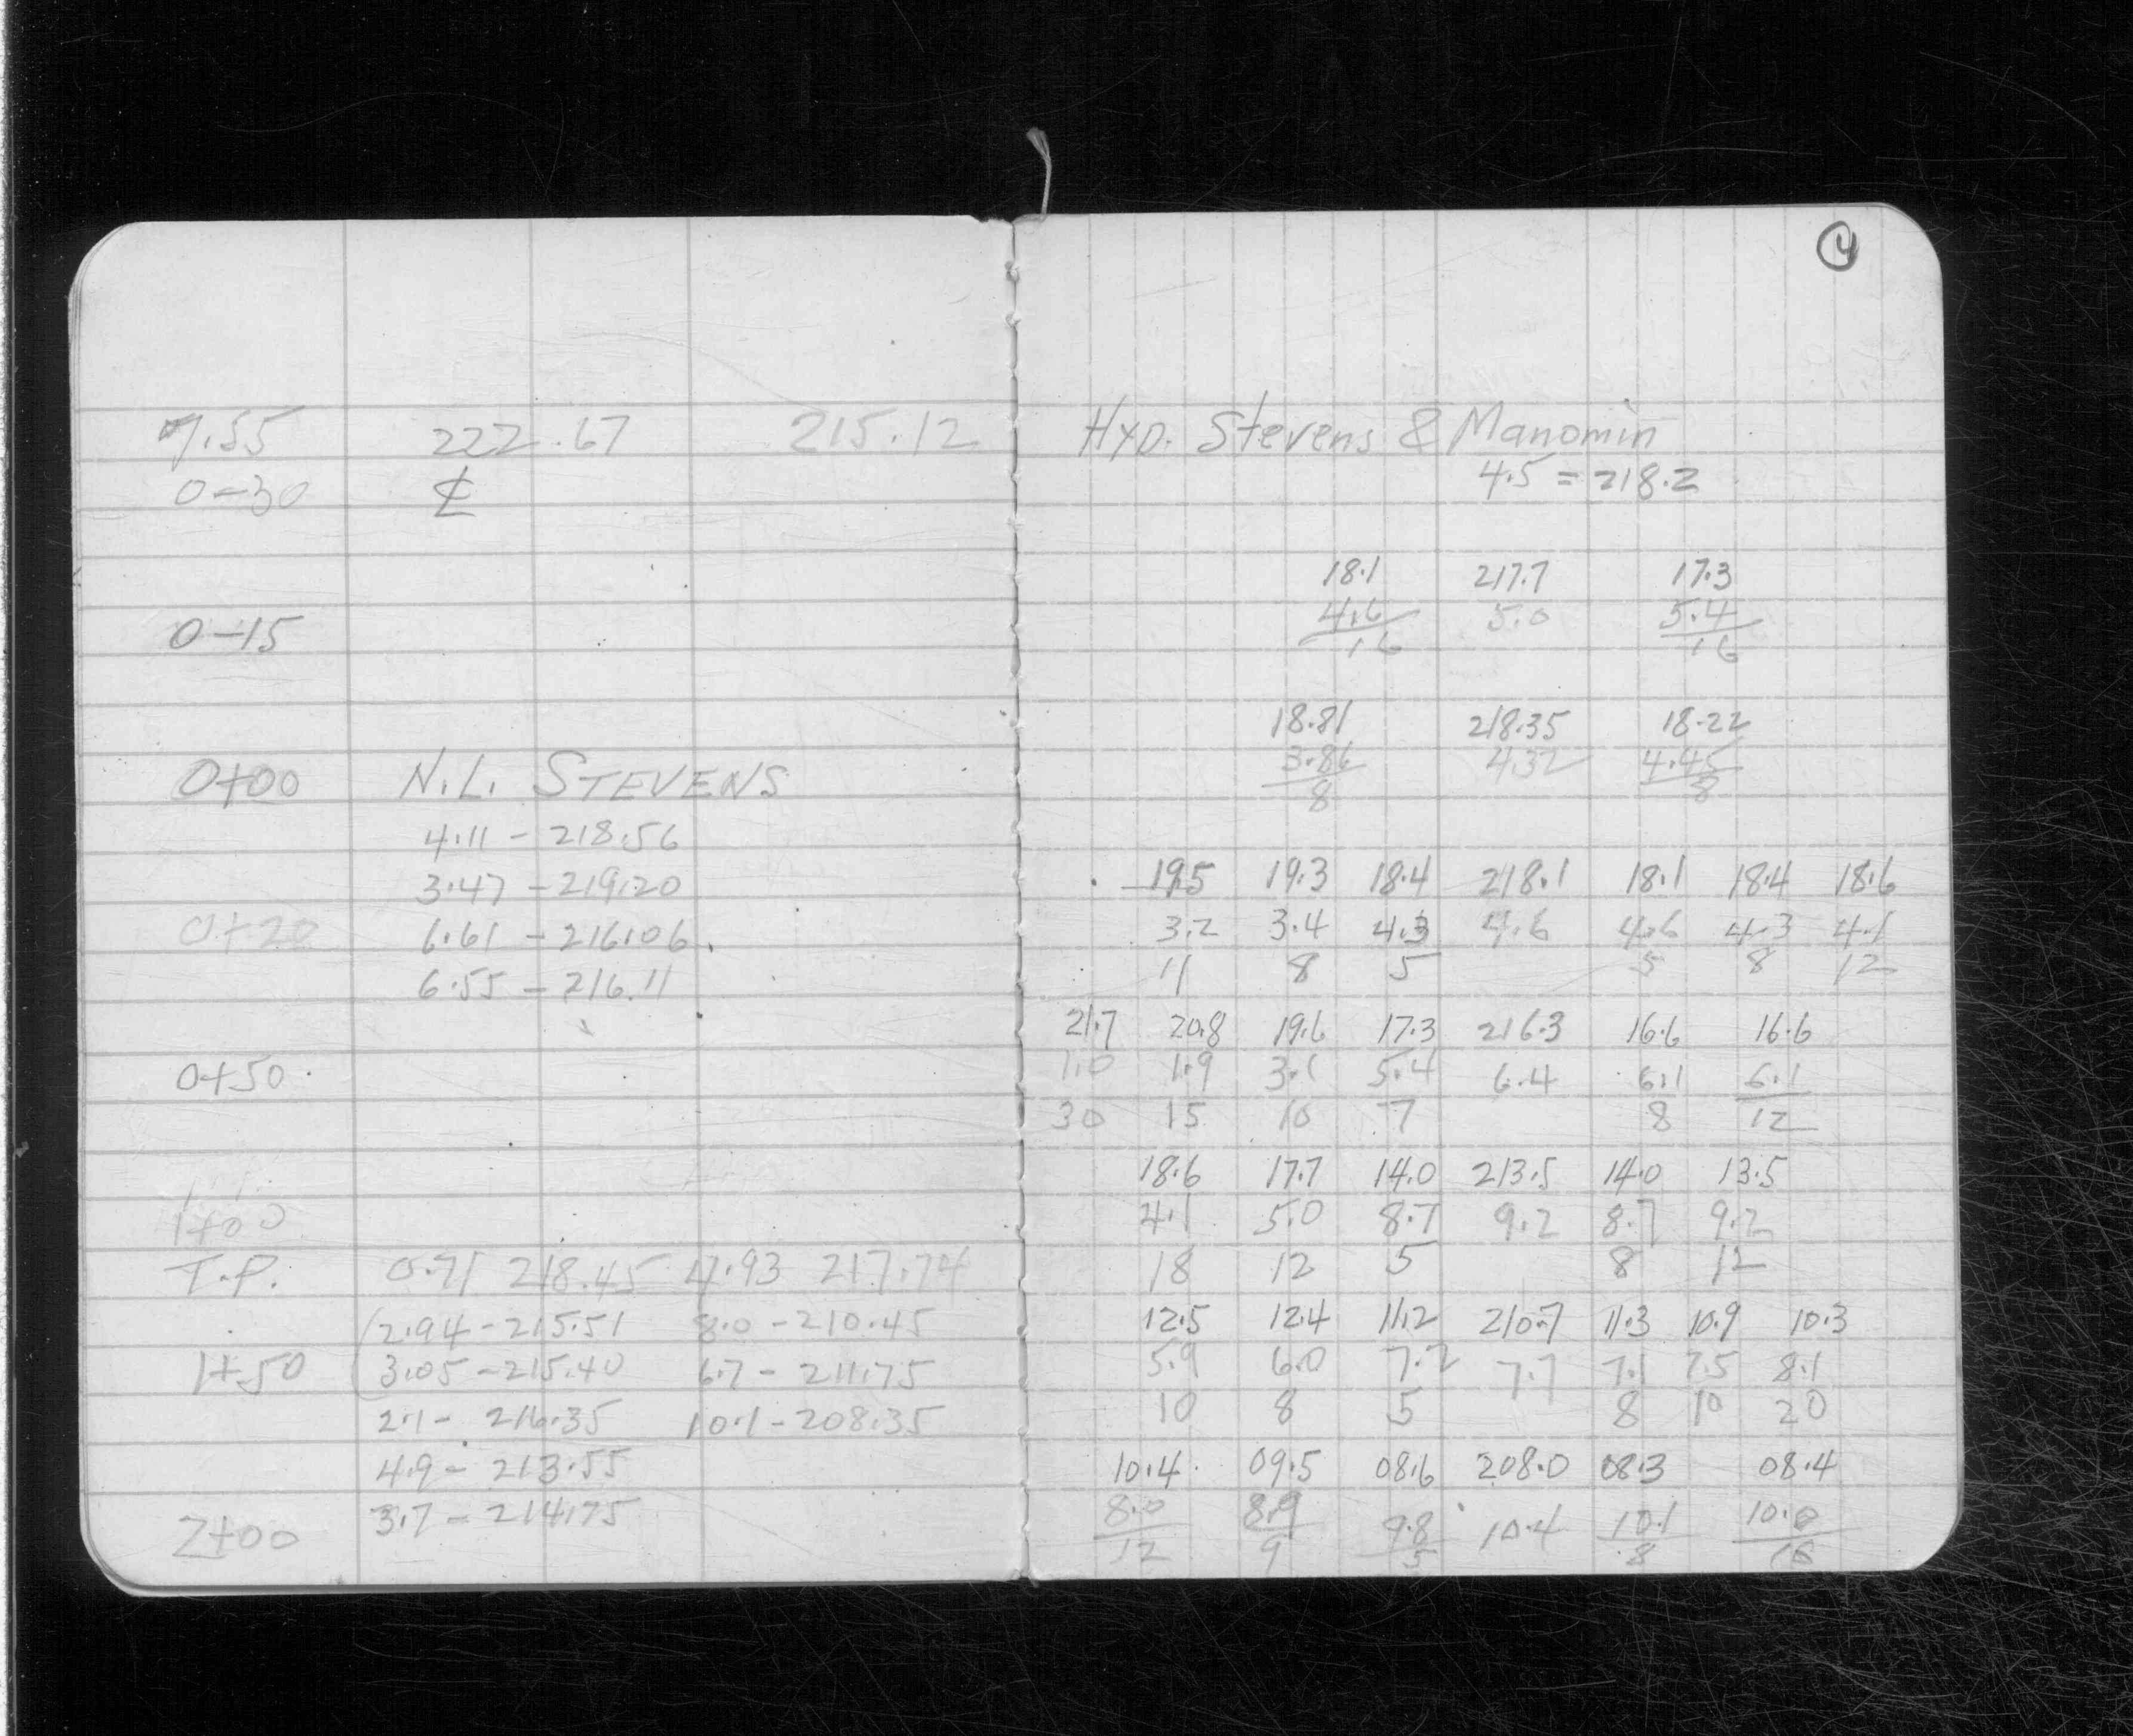 4
7.55 222.67 215.12 HYD. Stevens & Manomin
0-30 ℄ 4.5 = 218.2
18.1 217.7 17.3
0-15 4.6 5.0 5.4
16 16
18.81 218.35 18.22
0+00 N.L. STEVENS 3.86 4.32 4.45
8 8
4.11 - 218.56
3.47 - 219.20 19.5 19.3 18.4 218.1 18.1 18.4 18.6
0+20 6.61 - 216.06 3.2 3.4 4.3 4.6 4.6 4.3 4.1
6.55 - 216.11 11 8 5 5 8 12
21.7 20.8 19.6 17.3 216.3 16.6 16.6
0+50 1.0 1.9 3.1 5.4 6.4 6.1 6.1
30 15 10 7 8 12
18.6 17.7 14.0 213.5 14.0 13.5
1+00 4.1 5.0 8.7 9.2 8.7 9.2
T.P. 0.71 218.45 4.93 217.74 18 12 5 8 12
2.94 - 215.51 8.0 - 210.45 12.5 12.4 11.2 210.7 11.3 10.9 10.3
1+50 3.05 - 215.40 6.7 - 211.75 5.9 6.0 7.2 7.7 7.1 7.5 8.1
2.1 - 216.35 10.1 - 208.35 10 8 5 8 10 20
4.9 - 213.55 10.4 09.5 08.6 208.0 08.3 08.4
2+00 3.7 - 214.75 8.0 8.9 9.8 10.4 10.1 10.0
12 9 5 8